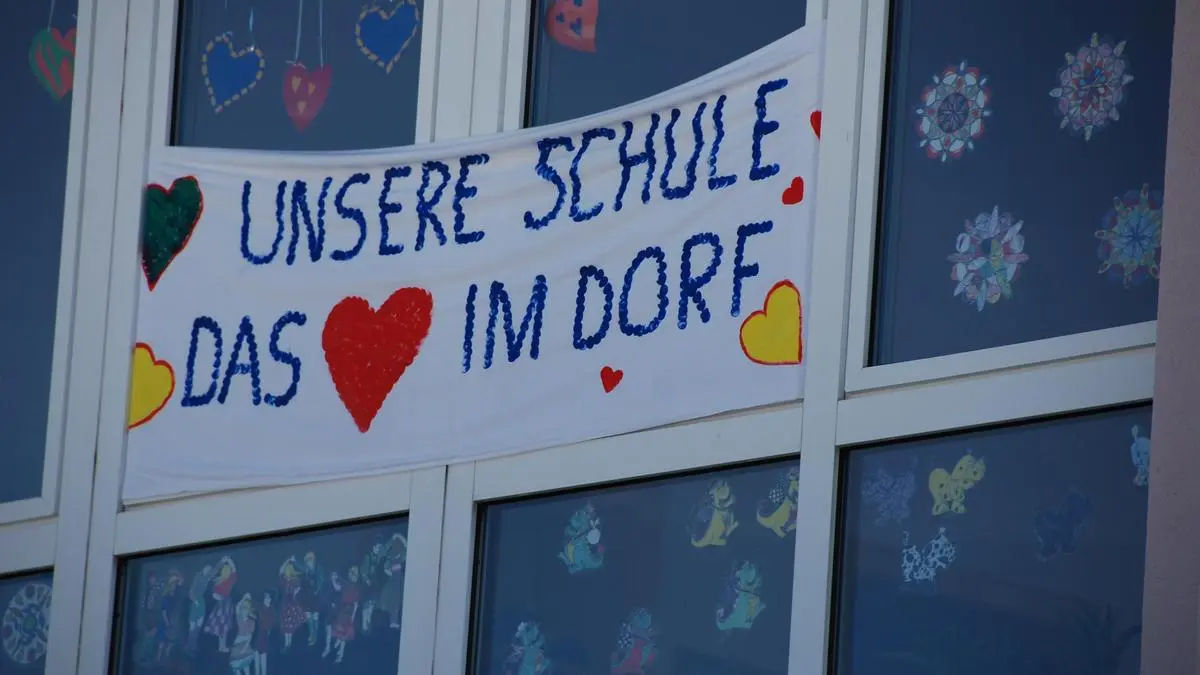 UNSERE SCHULE
DAS IM DORF